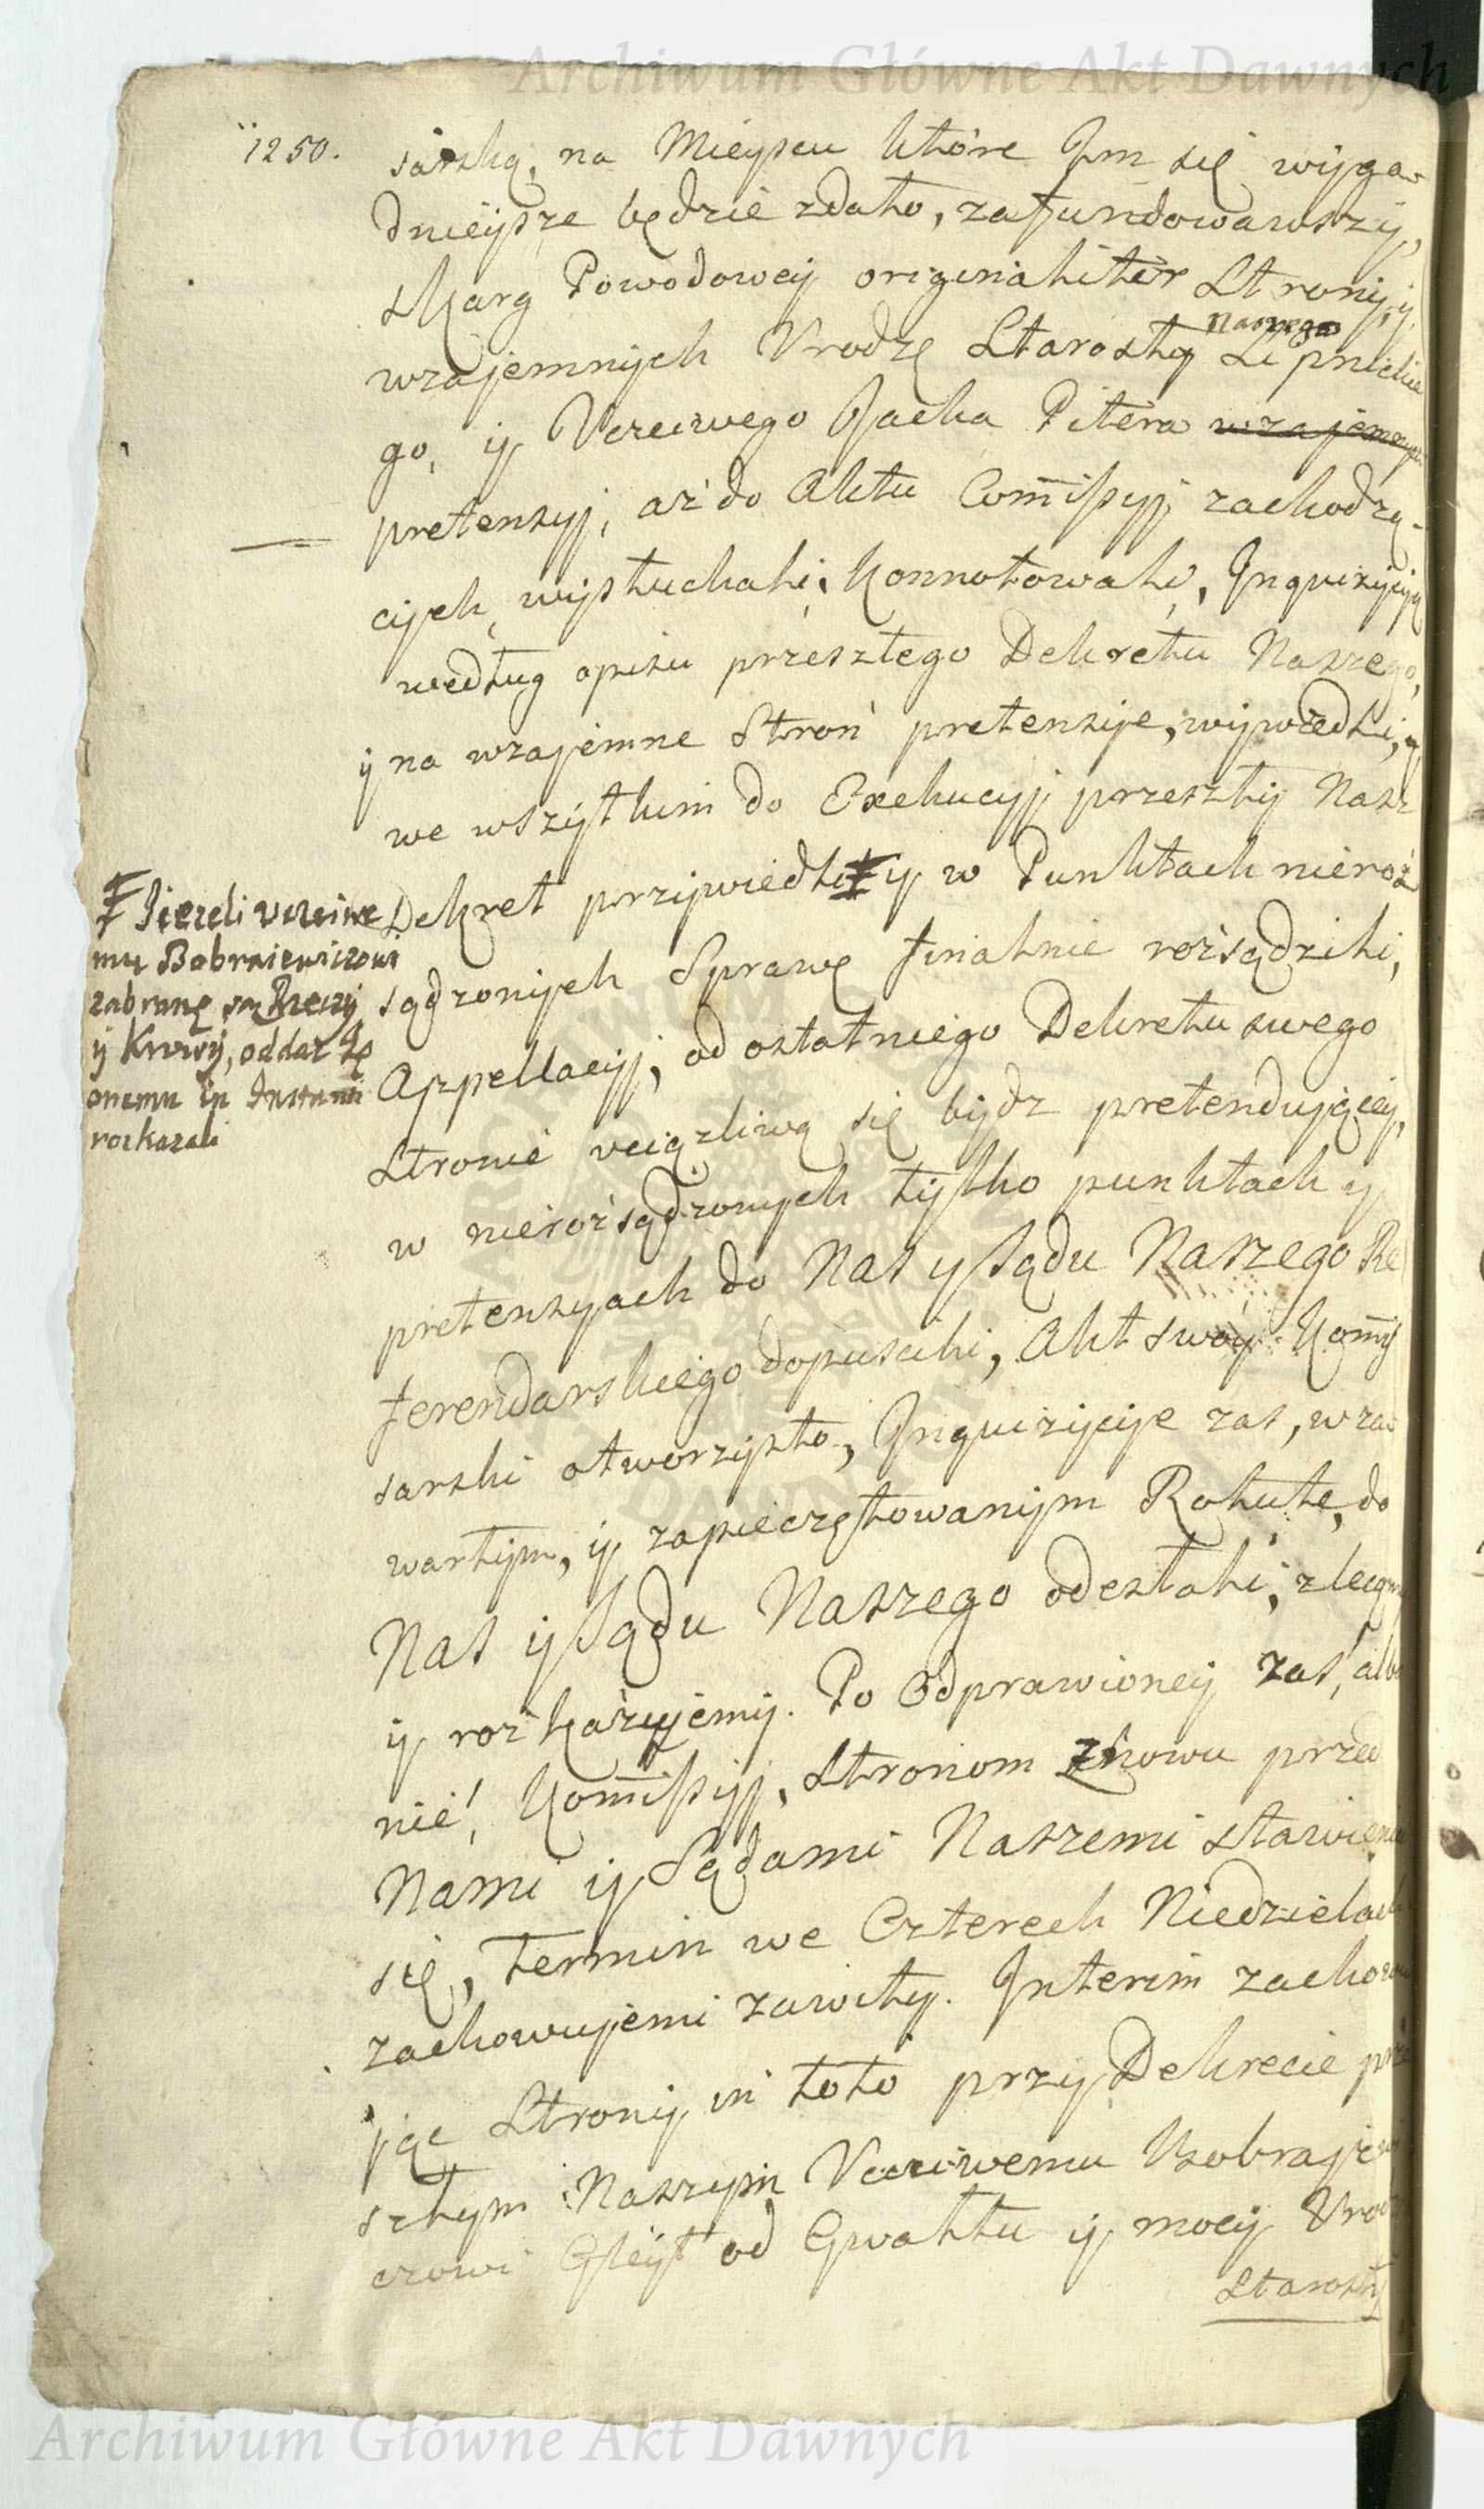 Archiwum Główne Akt Dawnych
1250.
sarską, na Mieyscu które Jm się wyga-
dnieysze będzie zdało, zafundowawszy,
skarg Powodowey originaliter Strony, y
wzajemnych Urodzę Starosty Naszego Lipnickie
go, y Uczciwego Jacka Pitera wzajemnych
pretensyj, aż do Aktu Commissyj zachodzą-
cych, wysłuchali, konnotowali, Inquizycyją
według opisu przeszłego Dekretu Naszego,
y na wzajemne Stron pretensye, wywiedli, y
we wszystkim do Exekucyj przeszły Nasz
Dekret przywiedli, # y w Punktach nieroz
sądzonych Sprawę finalnie rozsądzili,
Appellacyj, od ostatniego Dekretu swego
Stronie uciążliwą się bydz pretendującey,
w nierozsądzonych tylko punktach y
pretensyach do Nas y Sądu Naszego Re
ferendarskiego dopuscili, Akt swóy Kommis
sarski otworzysto, Inquizycye zas, w za
wartym, y zapieczętowanym Rotule, do
Nas y Sądu Naszego odesłali, zlecamy
y rozkazujemy. Po Odprawioney zas, albo
nie, Kommissyj, Stronom znowu przed
Nami y Sądami Naszemi stawienia
się, Termin we Czterech Niedzielach
zachowujemi zawity. Interim zachowu
jąc Strony in toto przy Dekrecie prze
szłym Naszym Uczciwemu Bobrajewi
czowi Gleyt od Gwałtu y mocy Urodz
Starosty
# Jiezeli uczciwe
mu Bobraiewiczowi
zabrane są Rzeczy
y Krowy, oddać Je
onemu in Instanti
rozkazali
Archiwum Główne Akt Dawnych